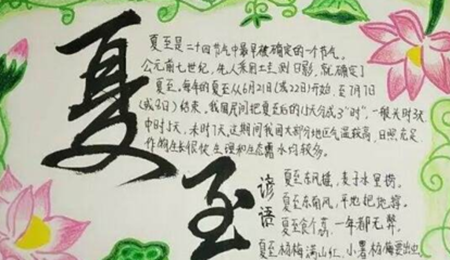 夏至
夏至是二十四节气中最早被确定的一个节气。
公元前七世纪，先人采用土圭测日影，就确定了
夏至。每年的夏至从6月21日(或22日)开始，至7月7日
(或8日)结束，我国民间把夏至后的15天分成3"时"，一般头时3天
中时5天，末时7天，这期间我国大部分地区气温较高，日照充足
作物生长很快，生理和生态需水均较多。
谚语
夏至东风摇，麦子水里捞。
夏至东南风，平地把地撑。
夏至食个荔，一年都无弊。
夏至杨梅满山红，小暑杨梅要出虫。